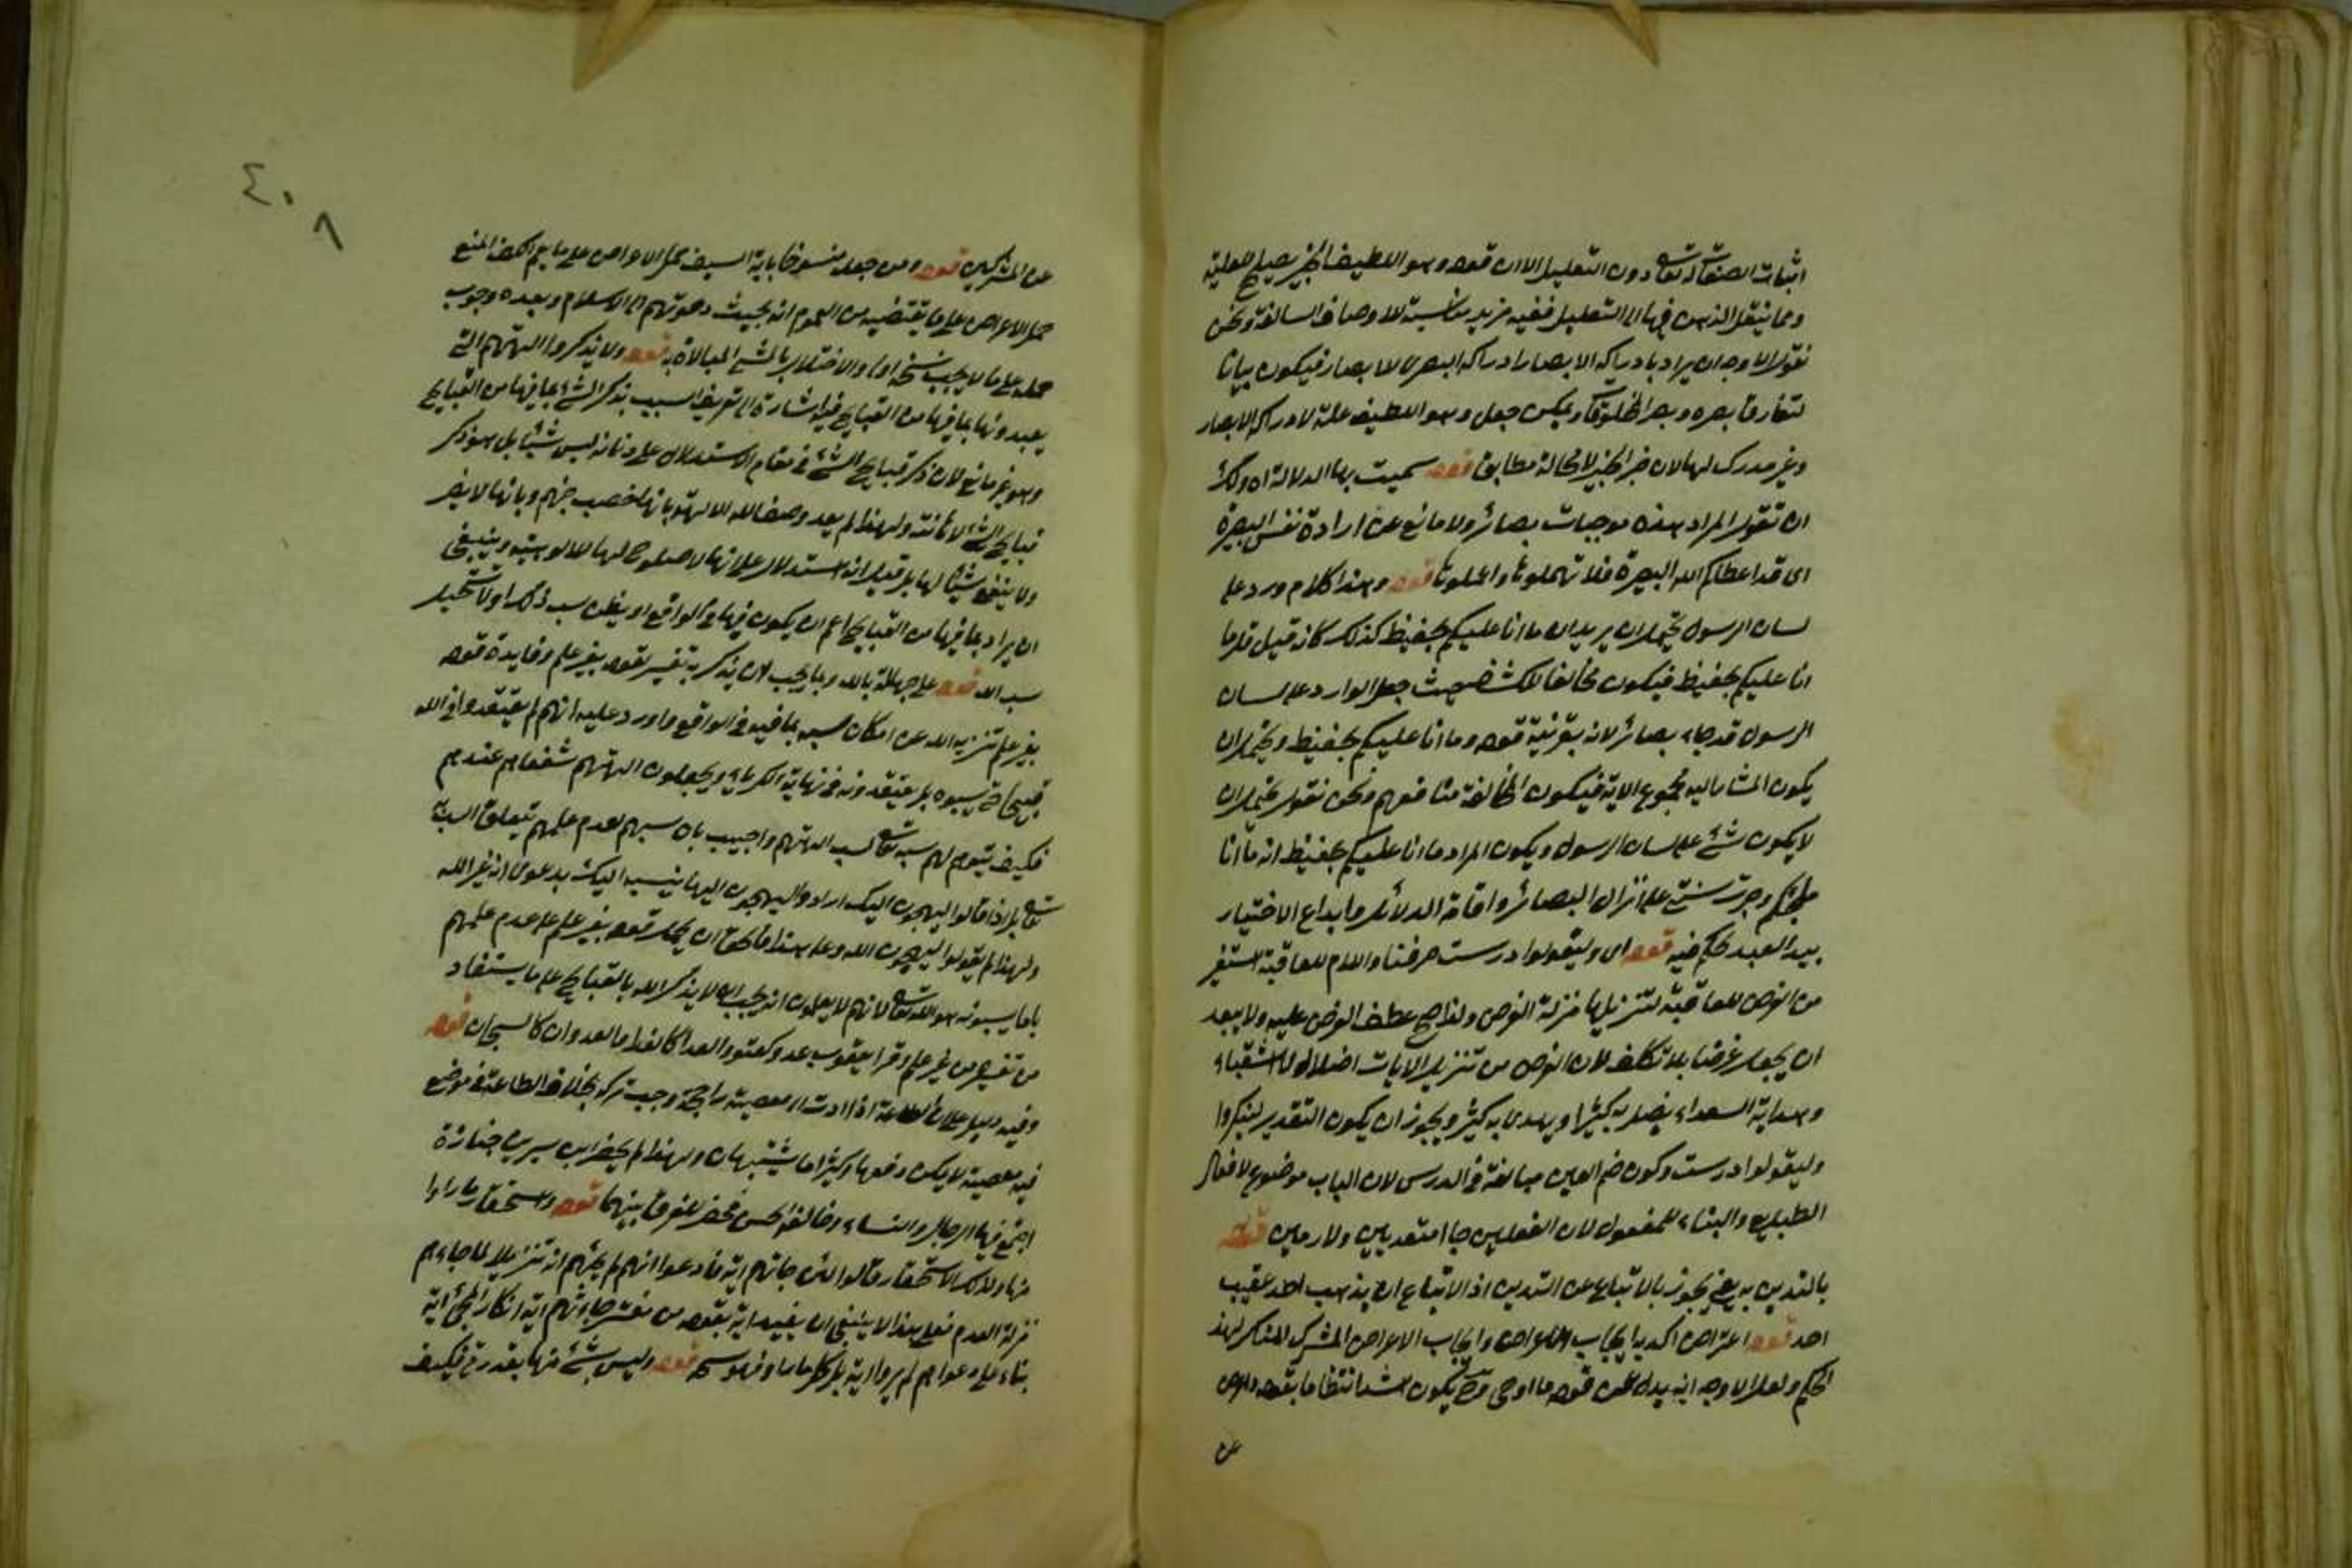 اثبات الصفات له تعالى دون التعليل الا ان قوله وهو اللطيف الخبير يصلح للعلية
ومما ينتقل الذهن فيها الى التعليل ففيه مزيد مناسبة للاوصاف السالفة ونحن
نقول الاوجه ان يراد بادراكه الابصار ادراكه البصرى للابصار فيكون بيانا
لتفارق بصره وبصر المخلوقات ويمكن جعل وهو اللطيف علة لادراكه الابصار
وغير مدرك لها لان خبر الخبير لا محالة مطابق قوله سميت بها الدلالة اه ولك
ان تقول المراد هذه موجبات بصائر ولا مانع عن ارادة نفس البصيرة
اى قد اعطاكم الله البصيرة فلا تهملوها واعملوها قوله وهذا كلام ورد على
لسان الرسول يحتمل ان يريد ان ما انا عليكم بحفيظ كذلك كانه قيل قل ما
انا عليكم بحفيظ فيكون مخالفا للكشاف حيث جعل الوارد على لسان
الرسول قد جاء بصائر لانه بقرينة قوله وما انا عليكم بحفيظ ويحتمل ان
يكون المشار اليه مجموع الاية فيكون المخالفة منا فهم ونحن نقول يحتمل ان
لا يكون شئ على لسان الرسول ويكون المراد ما انا عليكم بحفيظ انه ما انا
وجرت سنتى على انزال البصائر واقامة الدلائل وابداع الاختيار
بيد العبد فيه قوله اى وليقولوا درست صرفنا واللام للعاقبة استعير
من الغرض للعاقبة لتنزيلها منزلة الغرض ولذا صح عطف الغرض عليه ولا يبعد
ان يجعل غرضا بلا تكلف لان الغرض من تنزيل الايات اضلال الاشقياء
وهداية السعداء يضل به كثيرا ويهدى به كثيرا ويجوز ان يكون التقدير لينكروا
وليقولوا درست وكون ضم العين مبالغة فى الدرس لان الباب موضوع لافعال
الطبايع والبناء للمفعول لان الفعلين جاا متعديين ولازمين قوله
بالتدين به يعنى يجوز بالاتباع عن التدين اذ الاتباع ان يذهب احد عقيب
احد قوله اعتراض اكد به ايجاب الاعراض المشرك المنكر لهذا
الحكم ولعل الاوجه انه بدل عن قوله ما اوحى وح يكون اشد انتظاما بقوله واعرض
عن
٤٠٨
عن المشركين قوله ومن جعله منسوخا باية السيف حمل الاعراض على ما يعم الكف المنع
حمل الاعراض على ما يقتضيه من العموم انه بحيث دعوتهم الى الاسلام وبعده وجوب
حمله على ما لا يجب نسخه اولى والاختلال بالشئ المبالاة به قوله ولا تذكروا الهتهم التى
يعبدونها بما فيها من القبايح فيه اشارة الى تعريف السب بذكر الشئ بما فيها من القبايح
وهو غير مانع لان ذكر قبايح الشئ فى مقام الاستدلال على دنائه ليس شيئا بل هو ذكر
قبايح الشئ لاهانته ولهذا لم يعد وصف الله الالهة بانها حصب جهنم وبانها لا يضر
ولا ينفع شيئا لها بل قيل انه استدلال على انها لا صلوح لها للالوهية وينبغى
ان يراد بما فيها من القبايح اعم ان يكون فيها فى الواقع او يظن سب ذلك اولا
سب الله قوله على جهالة بالله وبما يجب لان يذكر به تفسير لقوله بغير علم وفايدة قوله
بغير علم تنزيه الله عن امكان سبه بما فيه فى الواقع واورد عليه انهم لم يعتقدوا فى الله
قبيحا حتى يسبوه بل يعتقدونه فى نهاية الكبرياء ويجعلون الهتهم شفعاهم عندهم
فكيف يتوهم لهم سبه تعالى لسب الهتهم واجيب بان سبهم لعدم علمهم بتعلق السب
تعالى بل اذا قالوا اليهجون اليك ارادوا اليهجون ينسبه اليك بدعوى انه غير الله
ولهذا لم يقولوا ليهجون الله وعلى هذا فالحق ان يحمل قوله بغير علم على عدم علمهم
بانما يسبونه هو الله تعالى لا انهم لا يعلمون انه يجب ان لا يذكر الله بالقبايح على ما يستفاد
من تفسير من غير علم وقرا يعقوب عدوا كعتو والعدا كالغدا والعدوان كالسبحان قوله
وفيه دليل على ان الطاعة اذا ادت الى معصية راجحة وجب تركه بخلاف الطاعة فى موضع
فيه معصية لا يمكن دفعها وكثيرا ما يشتبهان ولهذا لم يحضر ابن سيرين جنازة
اجتمع فيها الرجال والنساء وخالفه الحسن فحضر للفرق بينهما قوله واستحقار ما راوا
منها ولذلك الاستحقار قالوا لئن جاتهم اية فادعوا انهم لم يجئهم انه تنزيلا لما جاءهم
منزلة العدم فعلى هذا لا ينبغى ان يقيد اية بقوله من مقترحاتهم اية انكار لمجئ اية
بناء على دعواهم لم يروا اية بل كل ما راوا فهو سحر قوله وليس شئ منها بقدرتى فكيف